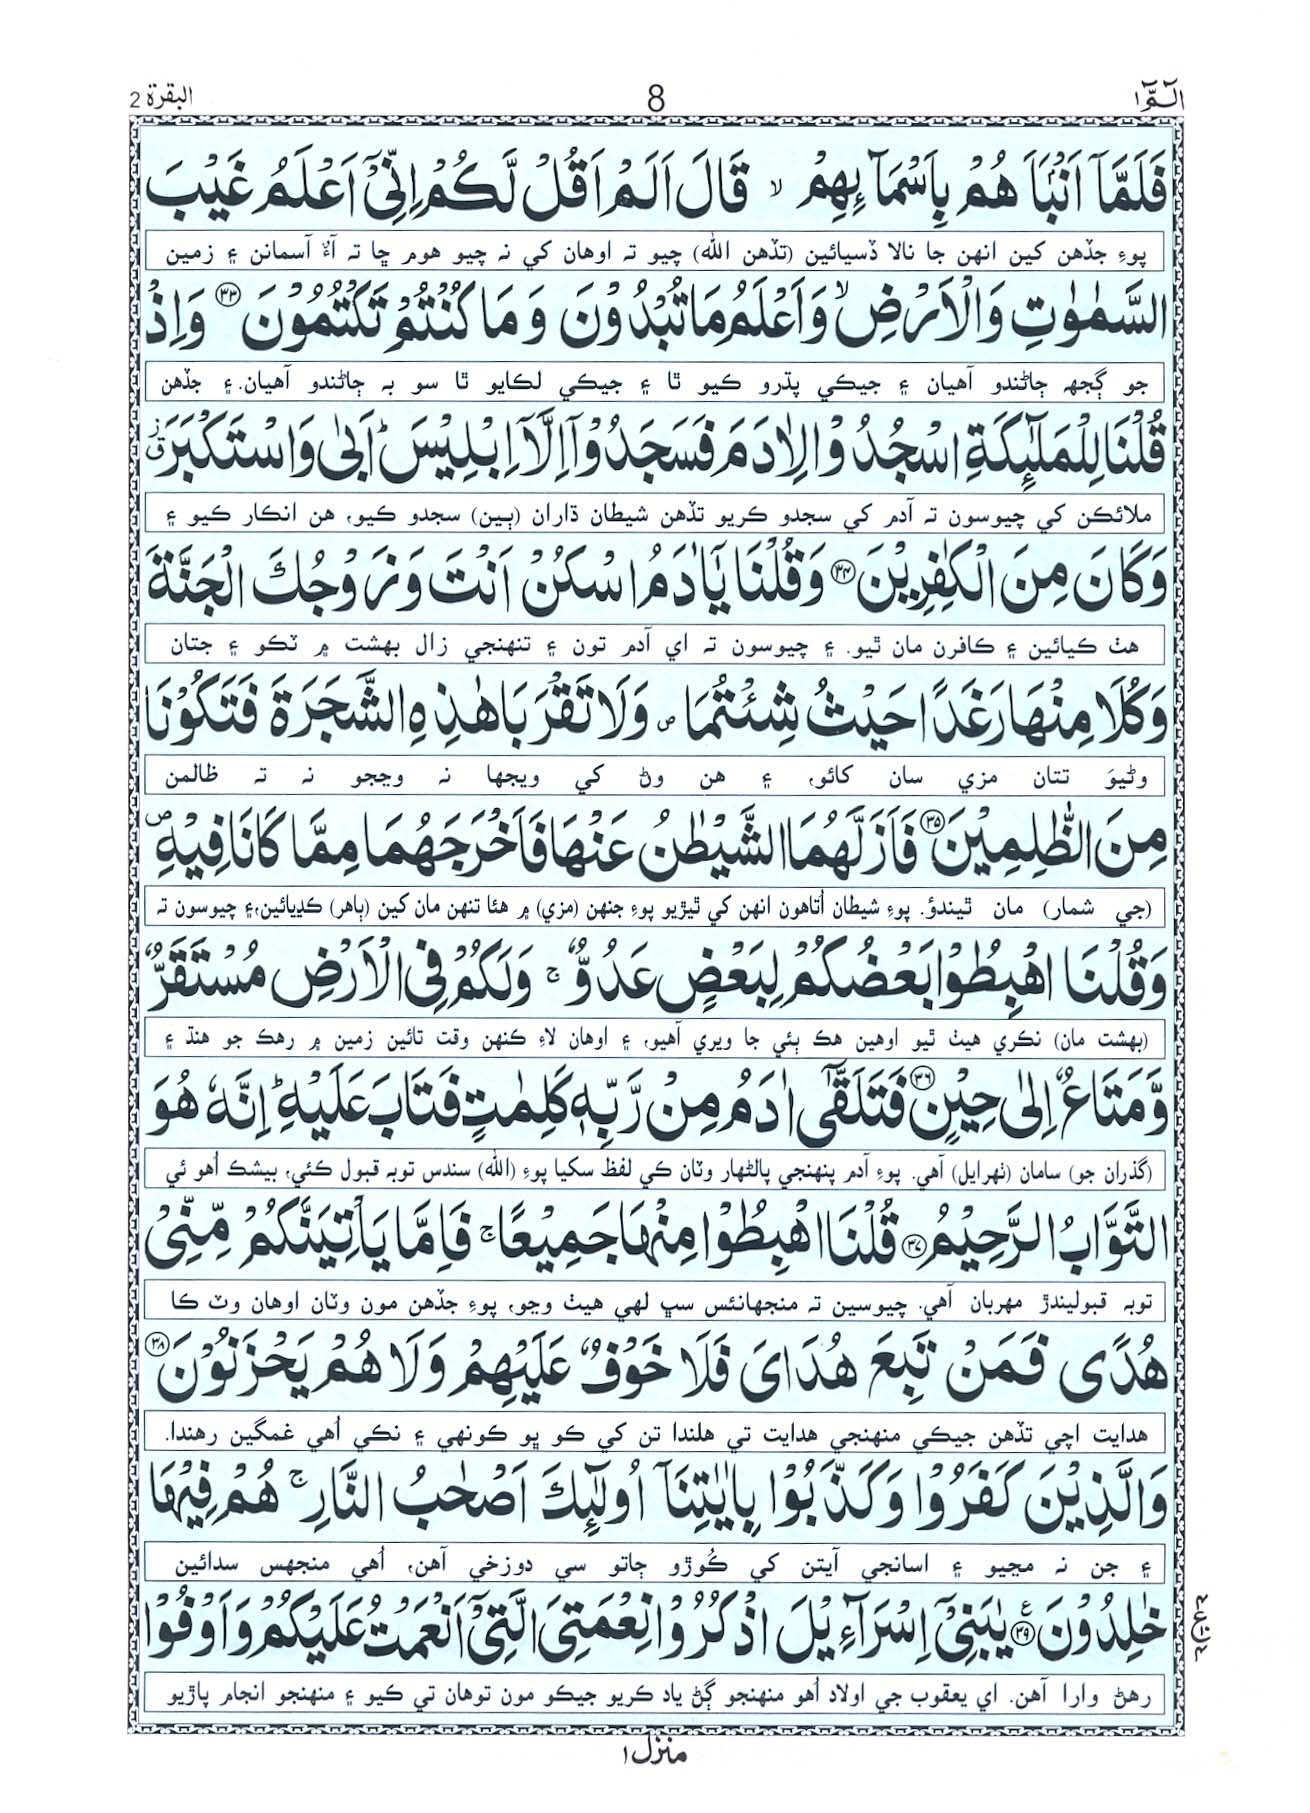 الٓمّٓ ١ 8 البقرة 2
فَلَمَّآ اَنْۢبَاَ هُمْ بِاَسْمَآئِهِمْ ۙ قَالَ اَلَمْ اَقُلْ لَّكُمْ اِنِّیْٓ اَعْلَمُ غَیْبَ
پوءِ جڏهن کين انهن جا نالا ڏسيائين (تڏهن الله) چيو ته اوهان کي نه چيو هوم ڇا ته آءٌ آسمانن ۽ زمين
السَّمٰوٰتِ وَالْاَرْضِ ۙ وَاَعْلَمُ مَا تُبْدُوْنَ وَ مَا كُنْتُمْ تَكْتُمُوْنَ ۳۳ وَاِذْ
جو ڳجهه ڄاڻندو آهيان ۽ جيڪي پڌرو ڪيو ٿا ۽ جيڪي لڪايو ٿا سو به ڄاڻندو آهيان. ۽ جڏهن
قُلْنَا لِلْمَلٰٓئِكَةِ اسْجُدُوْا لِاٰدَمَ فَسَجَدُوْٓا اِلَّآ اِبْلِیْسَ ؕ اَبٰی وَاسْتَكْبَرَ ۗ ز
ملائڪن کي چيوسون ته آدم کي سجدو ڪريو تڏهن شيطان ڌاران (ٻين) سجدو ڪيو، هن انڪار ڪيو ۽
وَكَانَ مِنَ الْكٰفِرِیْنَ ۳۴ وَقُلْنَا یٰٓاٰدَمُ اسْكُنْ اَنْتَ وَ زَوْجُكَ الْجَنَّةَ
هٺ ڪيائين ۽ ڪافرن مان ٿيو. ۽ چيوسون ته اي آدم تون ۽ تنهنجي زال بهشت ۾ ٽڪو ۽ جتان
وَكُلَا مِنْهَا رَغَدًا حَیْثُ شِئْتُمَا ۪ وَلَا تَقْرَبَا هٰذِهِ الشَّجَرَةَ فَتَكُوْنَا
وڻيوَ تتان مزي سان کائو، ۽ هن وڻ کي ويجها نه وڃجو نه ته ظالمن
مِنَ الظّٰلِمِیْنَ ۳۵ فَاَزَلَّهُمَا الشَّیْطٰنُ عَنْهَا فَاَخْرَجَهُمَا مِمَّا كَانَا فِیْهِ ۪
(جي شمار) مان ٿيندؤ. پوءِ شيطان اُتاهون انهن کي ٿيڙيو پوءِ جنهن (مزي) ۾ هئا تنهن مان کين (ٻاهر) ڪڍيائين،۽ چيوسون ته
وَقُلْنَا اهْبِطُوْا بَعْضُكُمْ لِبَعْضٍ عَدُوٌّ ۚ وَلَكُمْ فِی الْاَرْضِ مُسْتَقَرٌّ
(بهشت مان) نڪري هيٺ ٿيو اوهين هڪ ٻئي جا ويري آهيو، ۽ اوهان لاءِ ڪنهن وقت تائين زمين ۾ رهڪ جو هنڌ ۽
وَّمَتَاعٌ اِلٰی حِیْنٍ ۳۶ فَتَلَقّٰٓی اٰدَمُ مِنْ رَّبِّهٖ كَلِمٰتٍ فَتَابَ عَلَیْهِ ؕ اِنَّهٗ هُوَ
(گذران جو) سامان (ٺهرايل) آهي. پوءِ آدم پنهنجي پالڻهار وٽان ڪي لفظ سکيا پوءِ (الله) سندس توبه قبول ڪئي، بيشڪ اُهو ئي
التَّوَّابُ الرَّحِیْمُ ۳۷ قُلْنَا اهْبِطُوْا مِنْهَا جَمِیْعًا ۚ فَاِمَّا یَاْتِیَنَّكُمْ مِّنِّیْ
توبه قبوليندڙ مهربان آهي. چيوسين ته منجهانئس سڀ لهي هيٺ وڃو، پوءِ جڏهن مون وٽان اوهان وٽ ڪا
هُدًی فَمَنْ تَبِعَ هُدَایَ فَلَا خَوْفٌ عَلَیْهِمْ وَلَا هُمْ یَحْزَنُوْنَ ۳۸
هدايت اچي تڏهن جيڪي منهنجي هدايت تي هلندا تن کي ڪو ڀو ڪونهي ۽ نڪي اُهي غمگين رهندا.
وَالَّذِیْنَ كَفَرُوْا وَكَذَّبُوْا بِاٰیٰتِنَآ اُولٰٓئِكَ اَصْحٰبُ النَّارِ ۚ هُمْ فِیْهَا
۽ جن نه مڃيو ۽ اسانجي آيتن کي ڪُوڙو ڄاتو سي دوزخي آهن، اُهي منجهس سدائين
خٰلِدُوْنَ ۳۹ ع یٰبَنِیْٓ اِسْرَآءِیْلَ اذْكُرُوْا نِعْمَتِیَ الَّتِیْٓ اَنْعَمْتُ عَلَیْكُمْ وَاَوْفُوْا
رهڻ وارا آهن. اي يعقوب جي اولاد اُهو منهنجو ڳڻ ياد ڪريو جيڪو مون توهان تي ڪيو ۽ منهنجو انجام پاڙيو
منزل ١